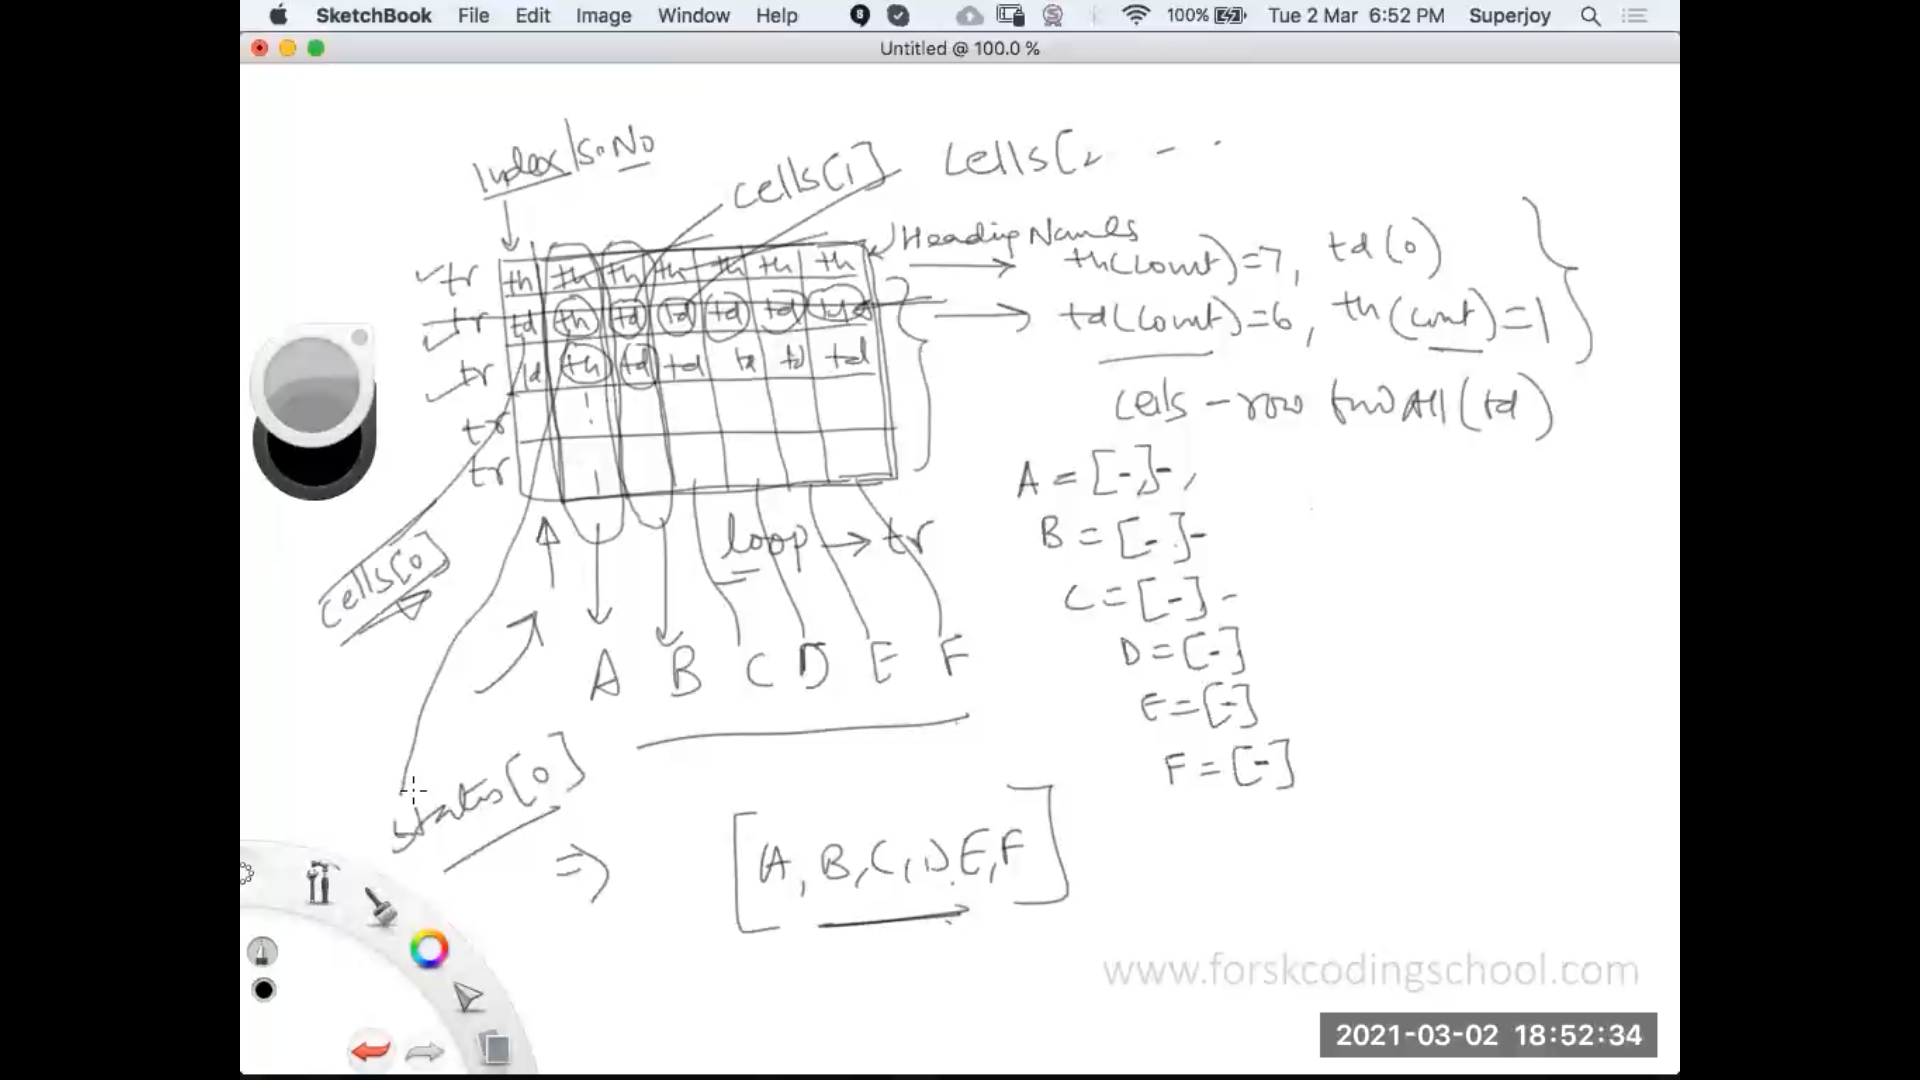 SketchBook File Edit Image Window Help 8 100% Tue 2 Mar 6:52 PM Superjoy
Untitled @ 100.0 %
Index/S.No
cells[1] cells[2 - - .
Heading Names
tr th th th th th th th
th(count)=7, td(0)
tr td th td td td td td
td(count)=6, th(count)=1
tr td th td td td td td
cells - row findAll(td)
tr
tr
A = [-,]-,
B = [-.]-
C = [-] -
D = [-]
E = [-]
F = [-]
loop → tr
cells[0]
A B C D E F
states[0]
⇒ [A, B, C, D. E, F]
www.forskcodingschool.com
2021-03-02 18:52:34